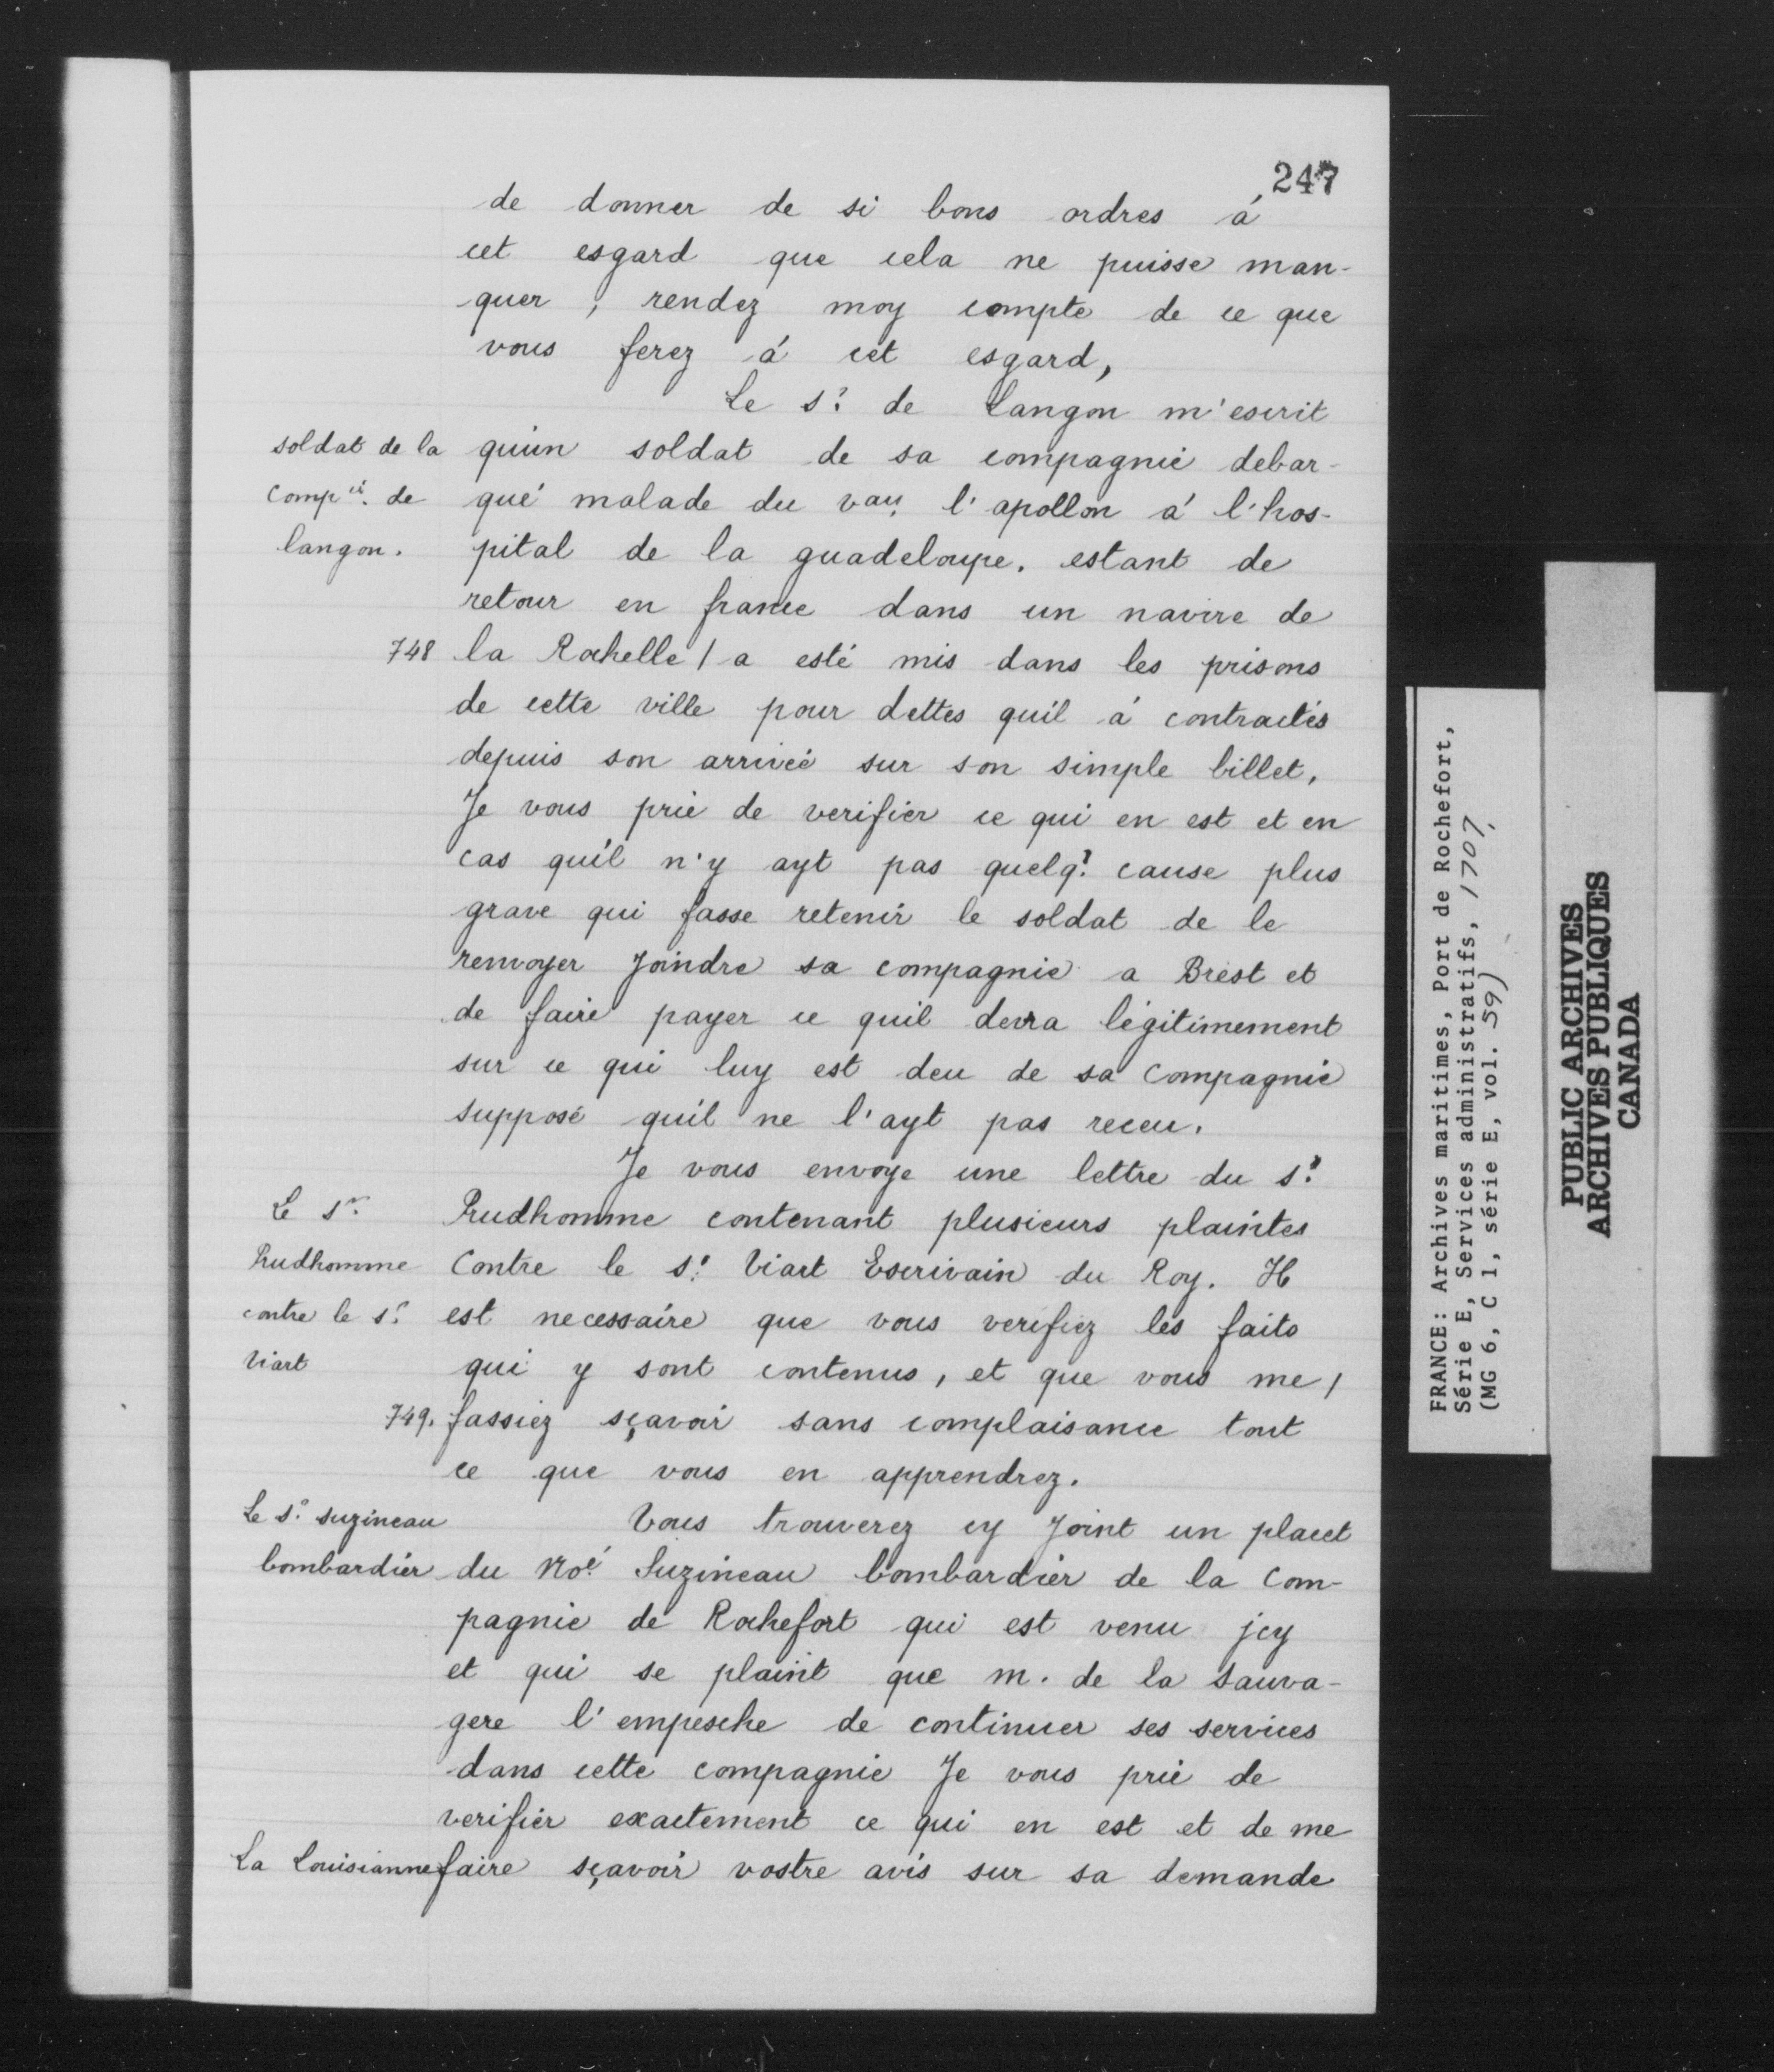 247
de donner de si bons ordres à
cet esgard que cela ne puisse man-
quer, rendez moy compte de ce que
vous ferez à cet esgard,
Le Sr. de Langon m'escrit
soldat de la
compie. de
langon.
qu'un soldat de sa compagnie debar-
qué malade du vau. l'apollon à l'hos-
pital de la guadeloupe. estant de
retour en france dans un navire de
748 la Rochelle / a esté mis dans les prisons
de cette ville pour dettes quil à contractés
depuis son arrivée sur son simple billet,
Je vous prie de verifier ce qui en est et en
cas quil n'y ayt pas quelq? cause plus
grave qui fasse retenir le soldat de le
renvoyer Joindre sa compagnie a Brest et
de faire payer ce quil devra légitimement
sur ce qui luy est deu de sa Compagnie
supposé quil ne l'ayt pas receu.
Je vous envoye une lettre du sr.
Le Sr.
Prudhomme
contre le sr.
Viart
Prudhomme contenant plusieurs plaintes
Contre le sr. Viart Escrivain du Roy. Il
est necessaire que vous verifiez les faits
qui y sont contenus, et que vous me /
749. fassiez sçavoir sans complaisance tout
ce que vous en apprendrez.
Le Sr. Suzineau
bombardier
Vous trouverez cy Joint un placet
du No.é Suzineau bombardier de la Com-
pagnie de Rochefort qui est venu jcy
et qui se plaint que m. de la Sauva-
gere l'empesche de continuer ses services
dans cette compagnie Je vous prie de
verifier exactement ce qui en est et de me
La Louisianne
faire sçavoir vostre avis sur sa demande
FRANCE: Archives maritimes, Port de Rochefort,
Série E, Services administratifs, 1707,
(MG 6, C 1, série E, vol. 59)
PUBLIC ARCHIVES
ARCHIVES PUBLIQUES
CANADA